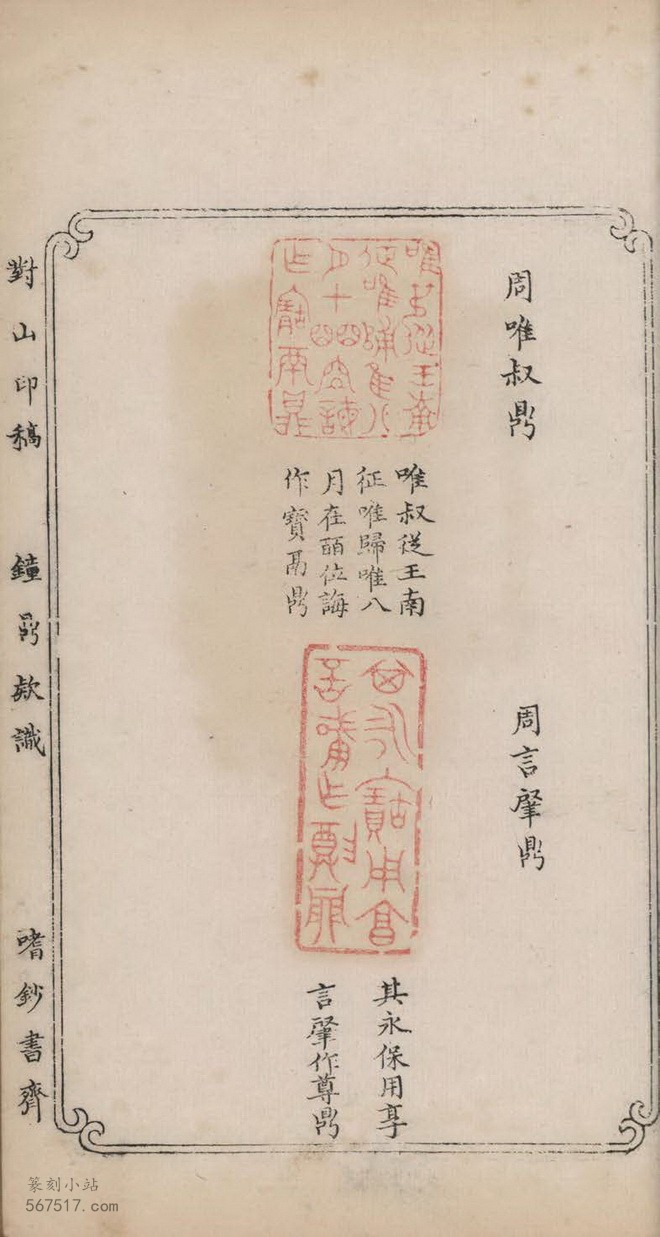 周唯叔鼎
唯叔從王南
征唯歸唯八
月在皕位誨
作寶鬲鼎
周言肈鼎
其永保用享
言肈作尊鼎
對山印稿
鐘鼎欵識
嗜鈔書齊
篆刻小站
567517.com